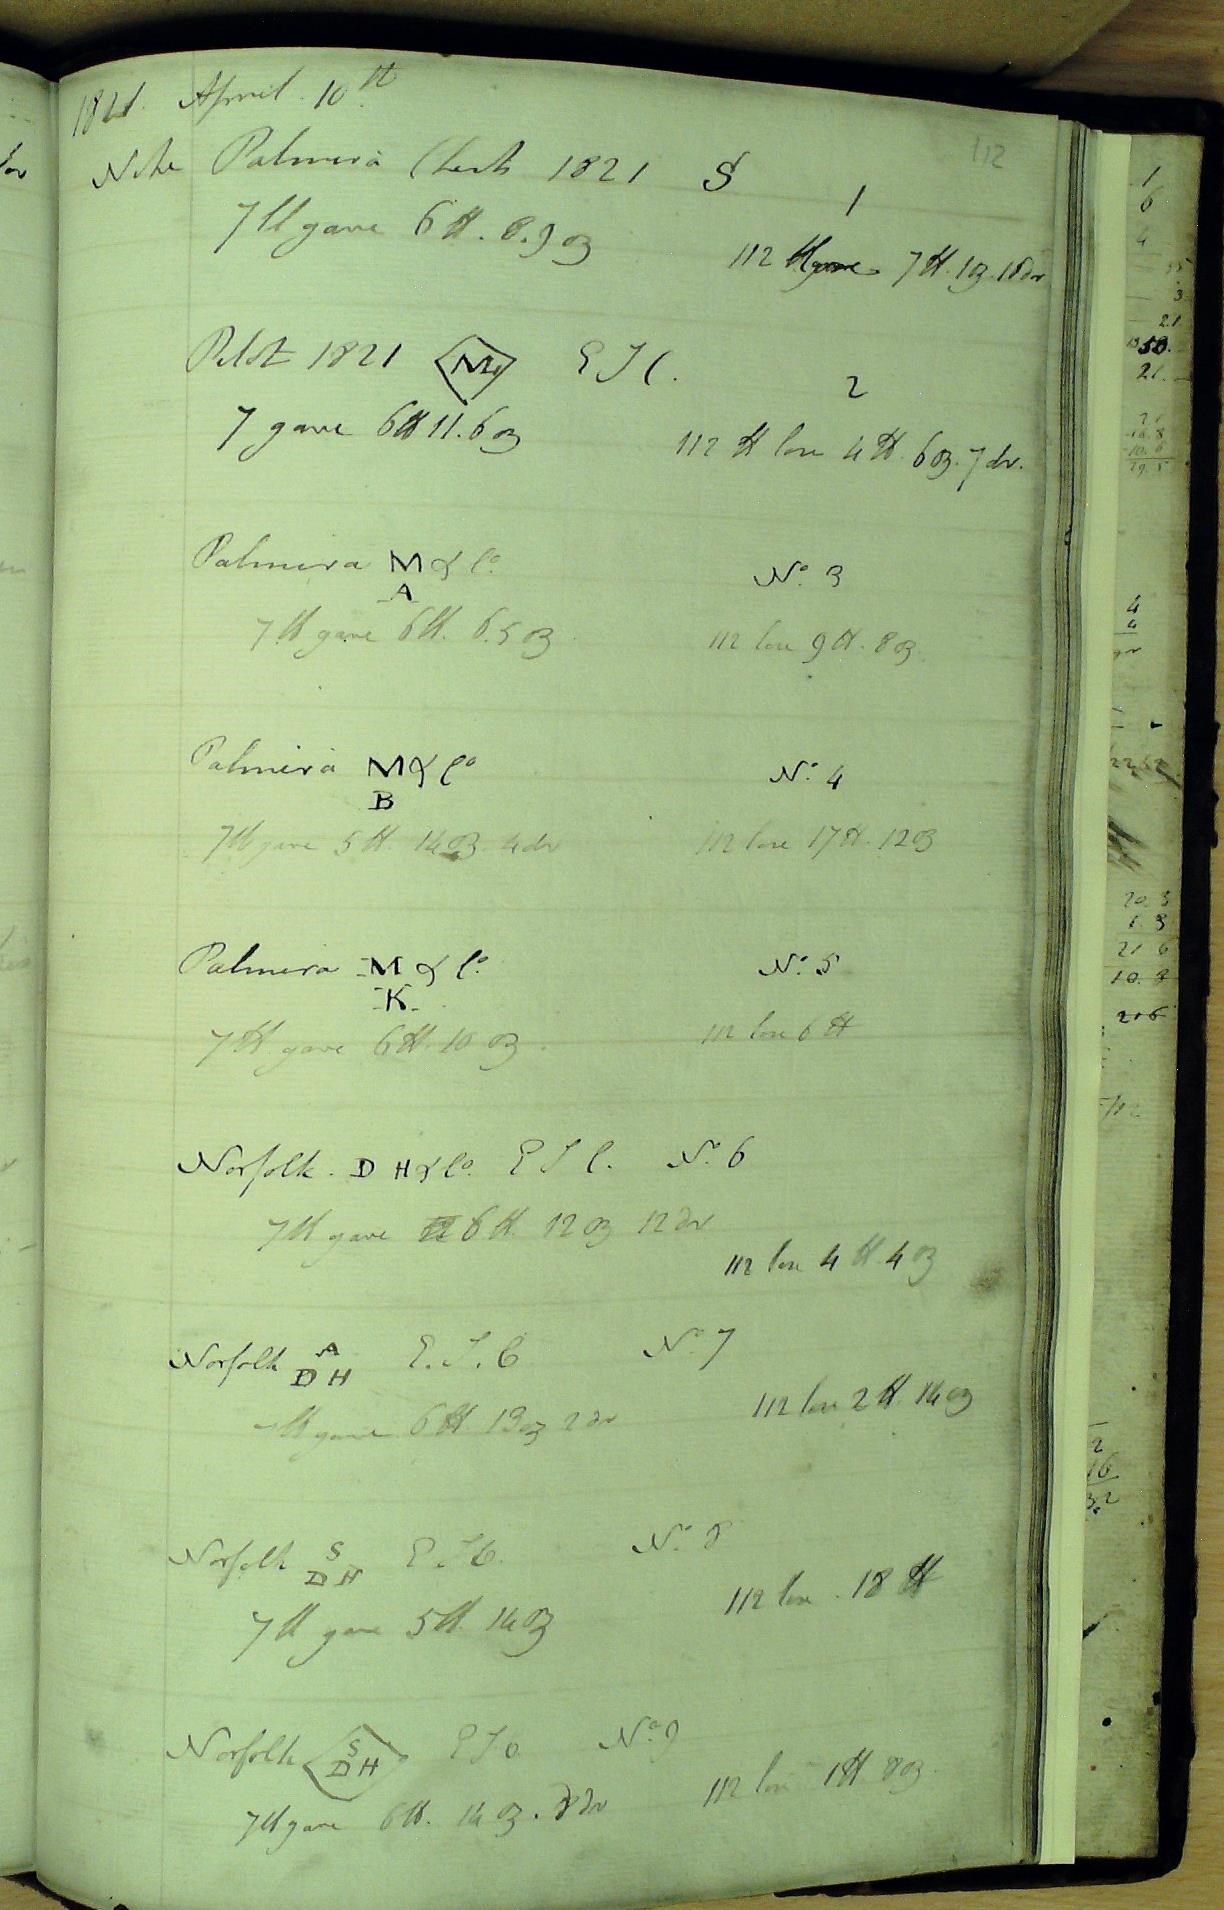 1821. April. 10th
112
Nitre Palmira Chests 1821 S 1
7 lb gave 6 lb. 8.9 oz
112 lb 7 lb. 1 oz. 18 dr
Pilot 1821 M EIC. 2
7 gave 6 lb 11.6 oz
112 lb lose 4 lb. 6 oz. 7 dr.
Palmira M & Co. No. 3
A
7 lb gave 6 lb. 6.5 oz
112 lose 9 lb. 8 oz.
Palmira M & Co No. 4
B
7 lb gave 5 lb. 14 oz. 4 dr
112 lose 17 lb. 12 oz
Palmira M & Co. No. 5
K
7 lb gave 6 lb. 10 oz.
112 lose 6 lb
Norfolk. D H & Co. E I C. No. 6
7 lb gave 6 lb 12 oz 12 dr
112 lose 4 lb. 4 oz
A
Norfolk D H E. I. C No 7
7 lb gave 6 lb. 13 oz 2 dr
112 lose 2 lb 14 oz
S
Norfolk D H E I C. No. 8
7 lb gave 5 lb. 14 oz
112 lose. 18 lb
S
Norfolk D H E I C No. 9
7 lb gave 6 lb. 14 oz. 8 dr
112 lose 1 lb 8 oz.